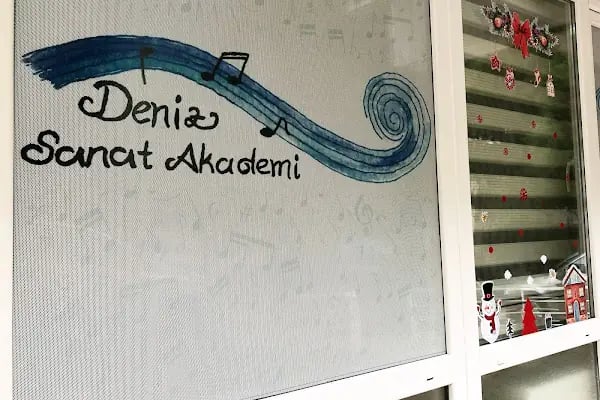 Deniz
Sanat Akademi